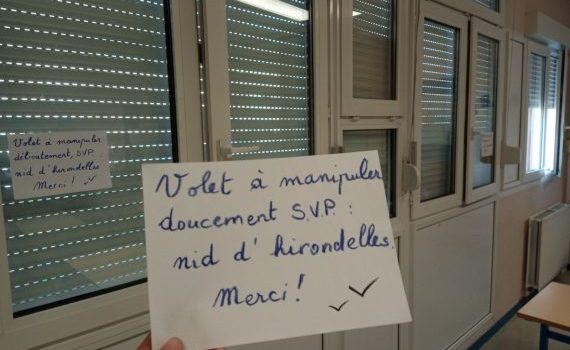 Volet à manipuler
délicatement, S.V.P.
nid d'hirondelles
Merci !
Volet à manipuler
doucement S.V.P. :
nid d'hirondelles.
Merci !